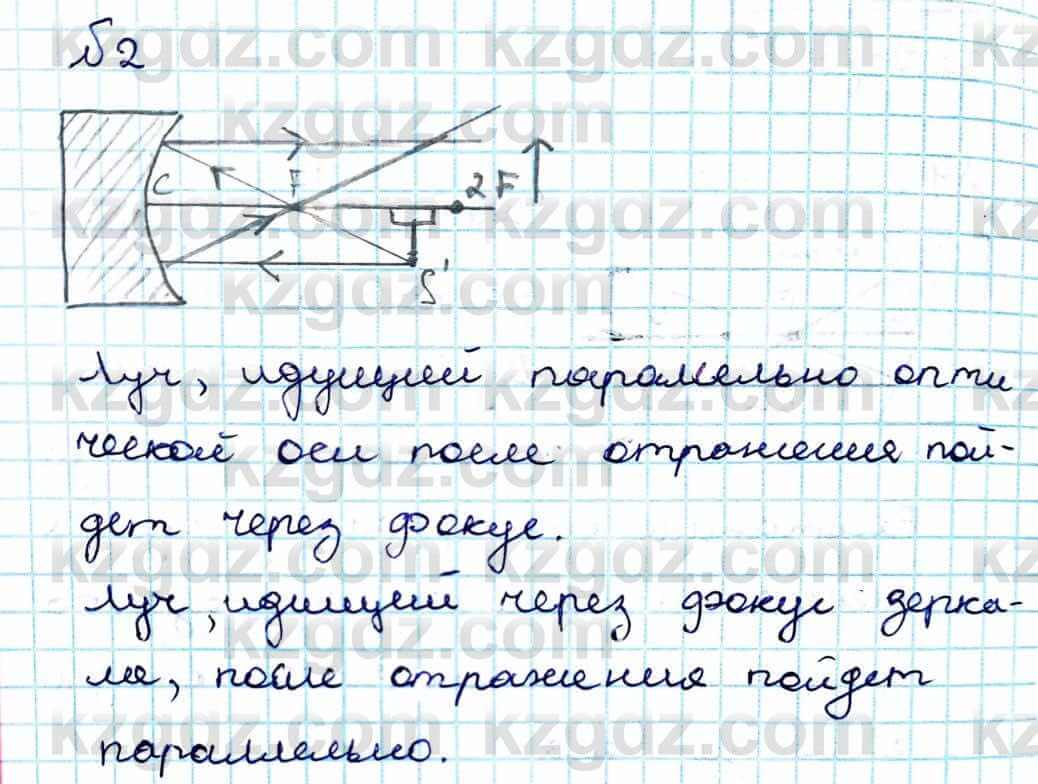 №2
C F 2F
S'
Луч, идущий параллельно опти
ческой оси после отражения пой-
дет через фокус.
Луч, идущий через фокус зерка-
ла, после отражения пойдет
параллельно.
kzgdz.com